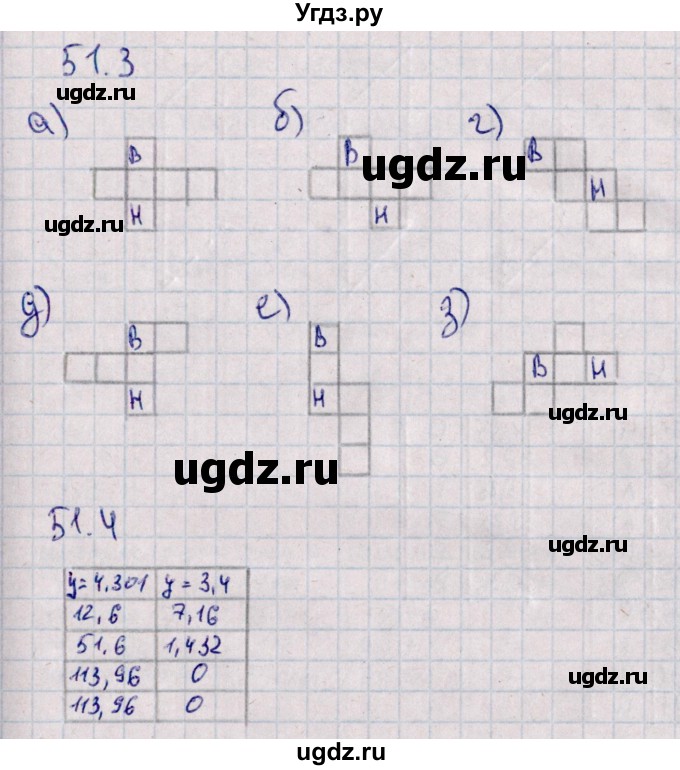 Угдз.ру
51.3
ugdz.ru
а) б) г)
В В В
ugdz.ru
Н
ugdz.ru
Н Н
д) е) з)
В В
В Н
Н Н
ugdz.ru
ugdz.ru
51.4
ugdz.ru
y=4,301 y=3,4
12,6 7,16
51.6 1,432
113,96 0
ugdz.ru
113,96 0
ugdz.ru